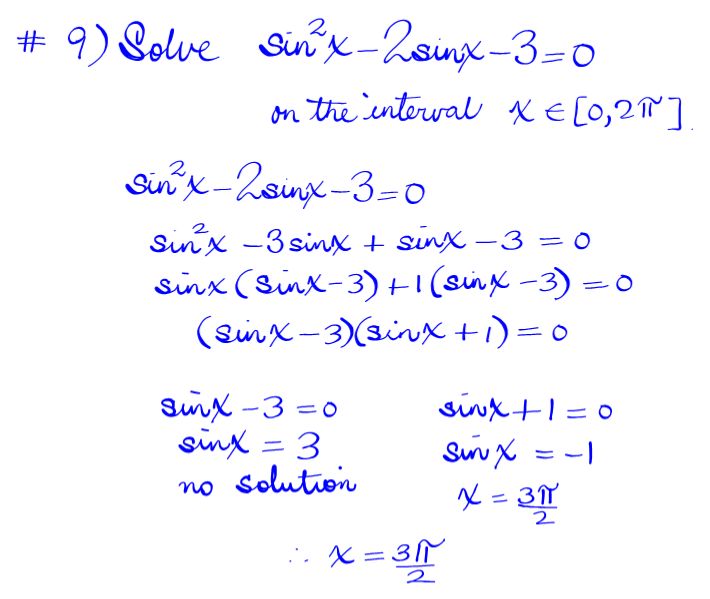 # 9) Solve sin²x – 2sinx – 3 = 0
on the interval x ∈ [0, 2π].
sin²x – 2sinx – 3 = 0
sin²x – 3 sinx + sinx – 3 = 0
sinx (sinx – 3) + 1 (sinx – 3) = 0
(sinx – 3)(sinx + 1) = 0
sinx – 3 = 0 sinx + 1 = 0
sinx = 3 sinx = –1
no solution x = 3π/2
∴ x = 3π/2